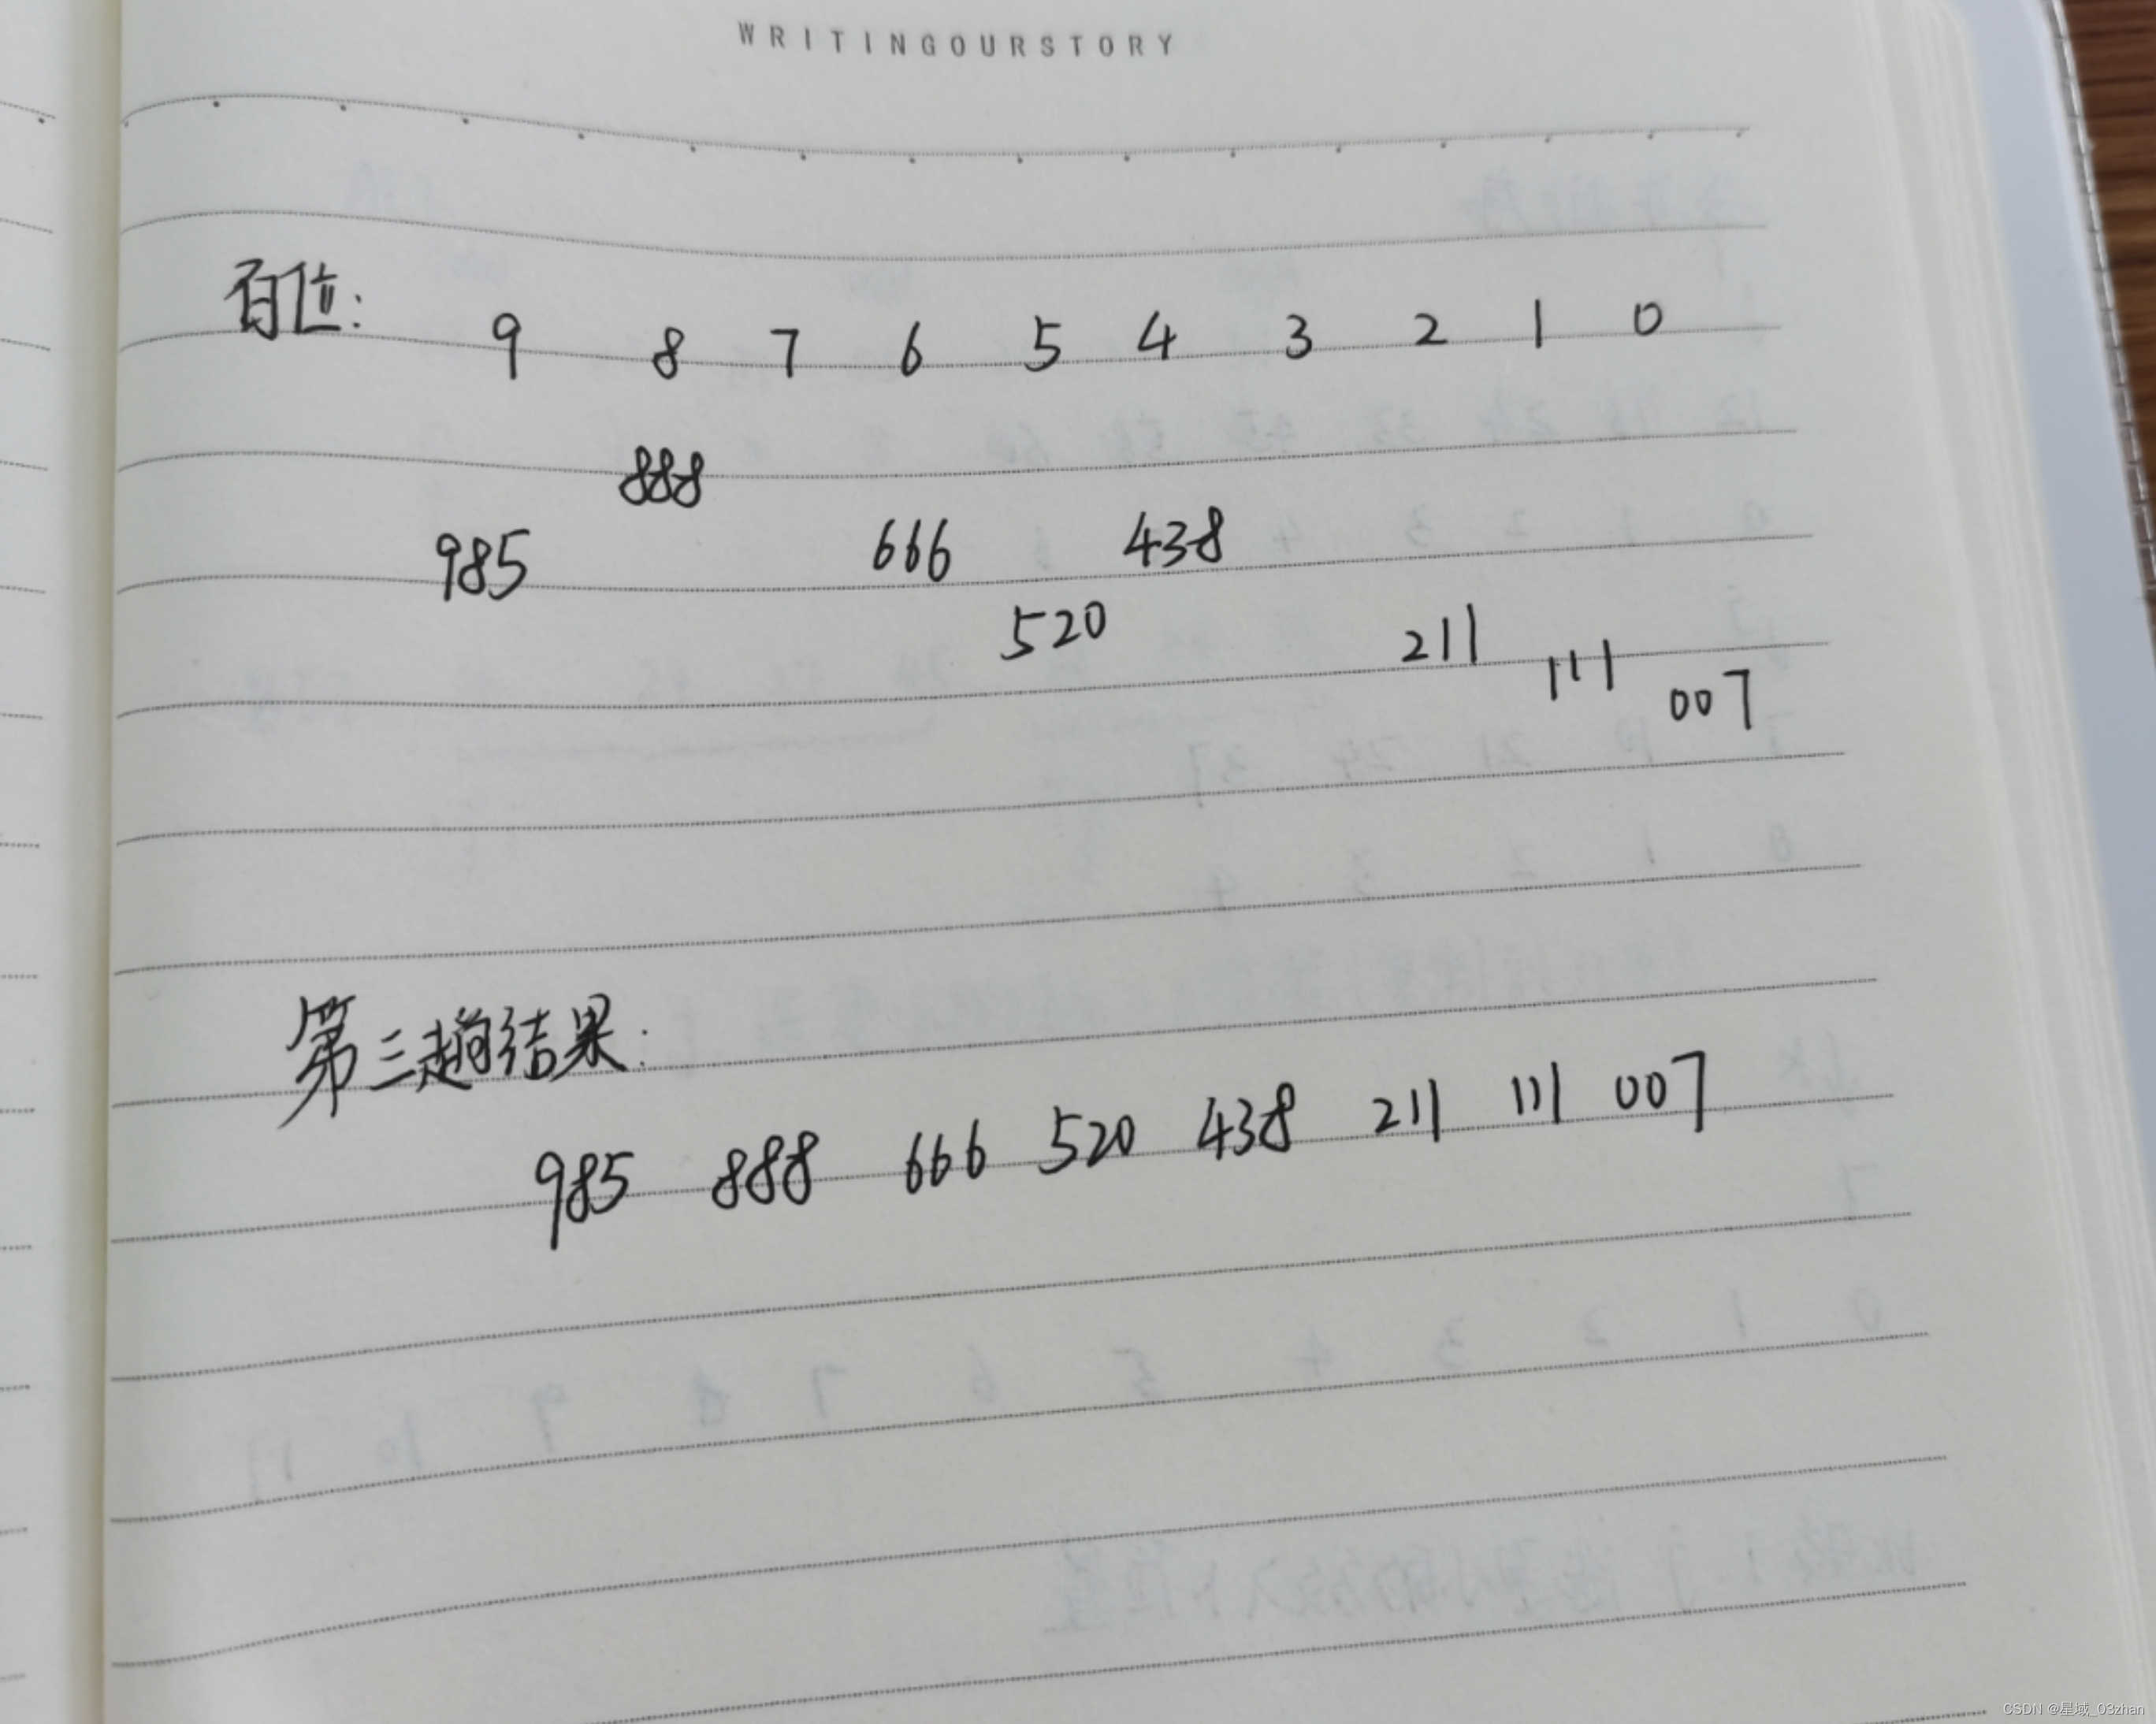 WRITINGOURSTORY
百位: 9 8 7 6 5 4 3 2 1 0
888
985 666 438
520 211
111
007
第三趟结果:
985 888 666 520 438 211 111 007
CSDN @星域_03zhan